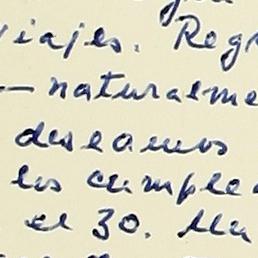 viajes. Reg
— naturalme
deseamos
los cumplea
el 30. Un